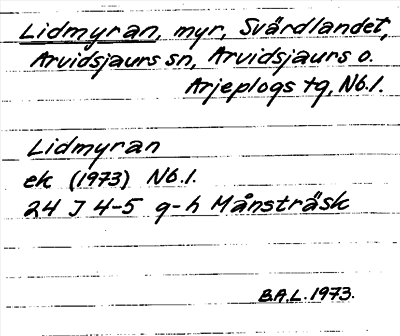 Lidmyran, myr, Svärdlandet,
Arvidsjaurs sn, Arvidsjaurs o.
Arjeplogs tg, Nb.l.
Lidmyran
ek (1973) Nb.l.
24 J 4-5 g-h Månsträsk
B.A.L. 1973.